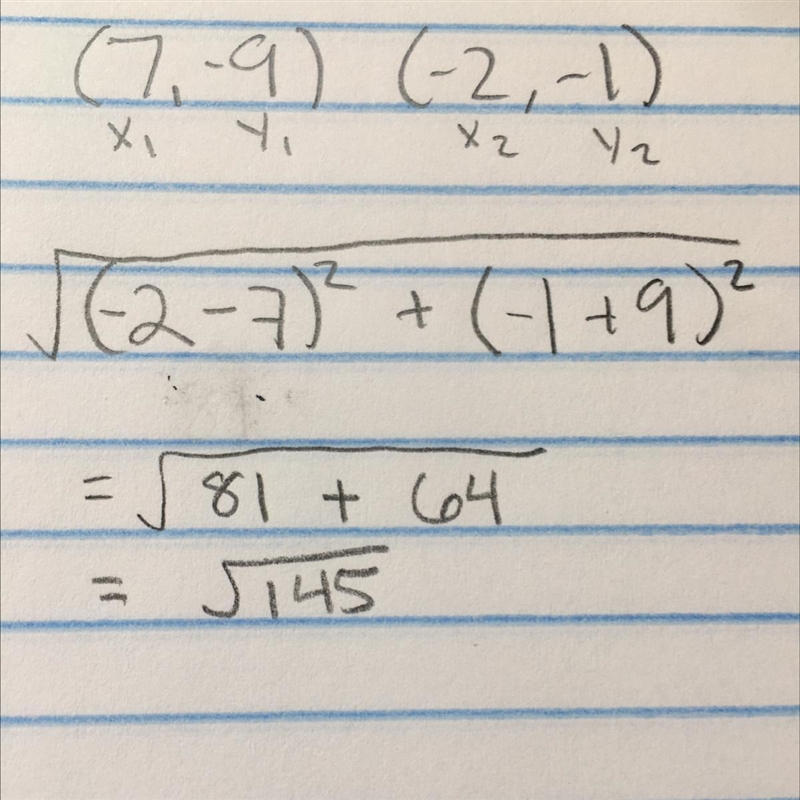 (7, -9) (-2, -1)
x₁ y₁ x₂ y₂
√(-2 - 7)² + (-1 + 9)²
= √81 + 64
= √145